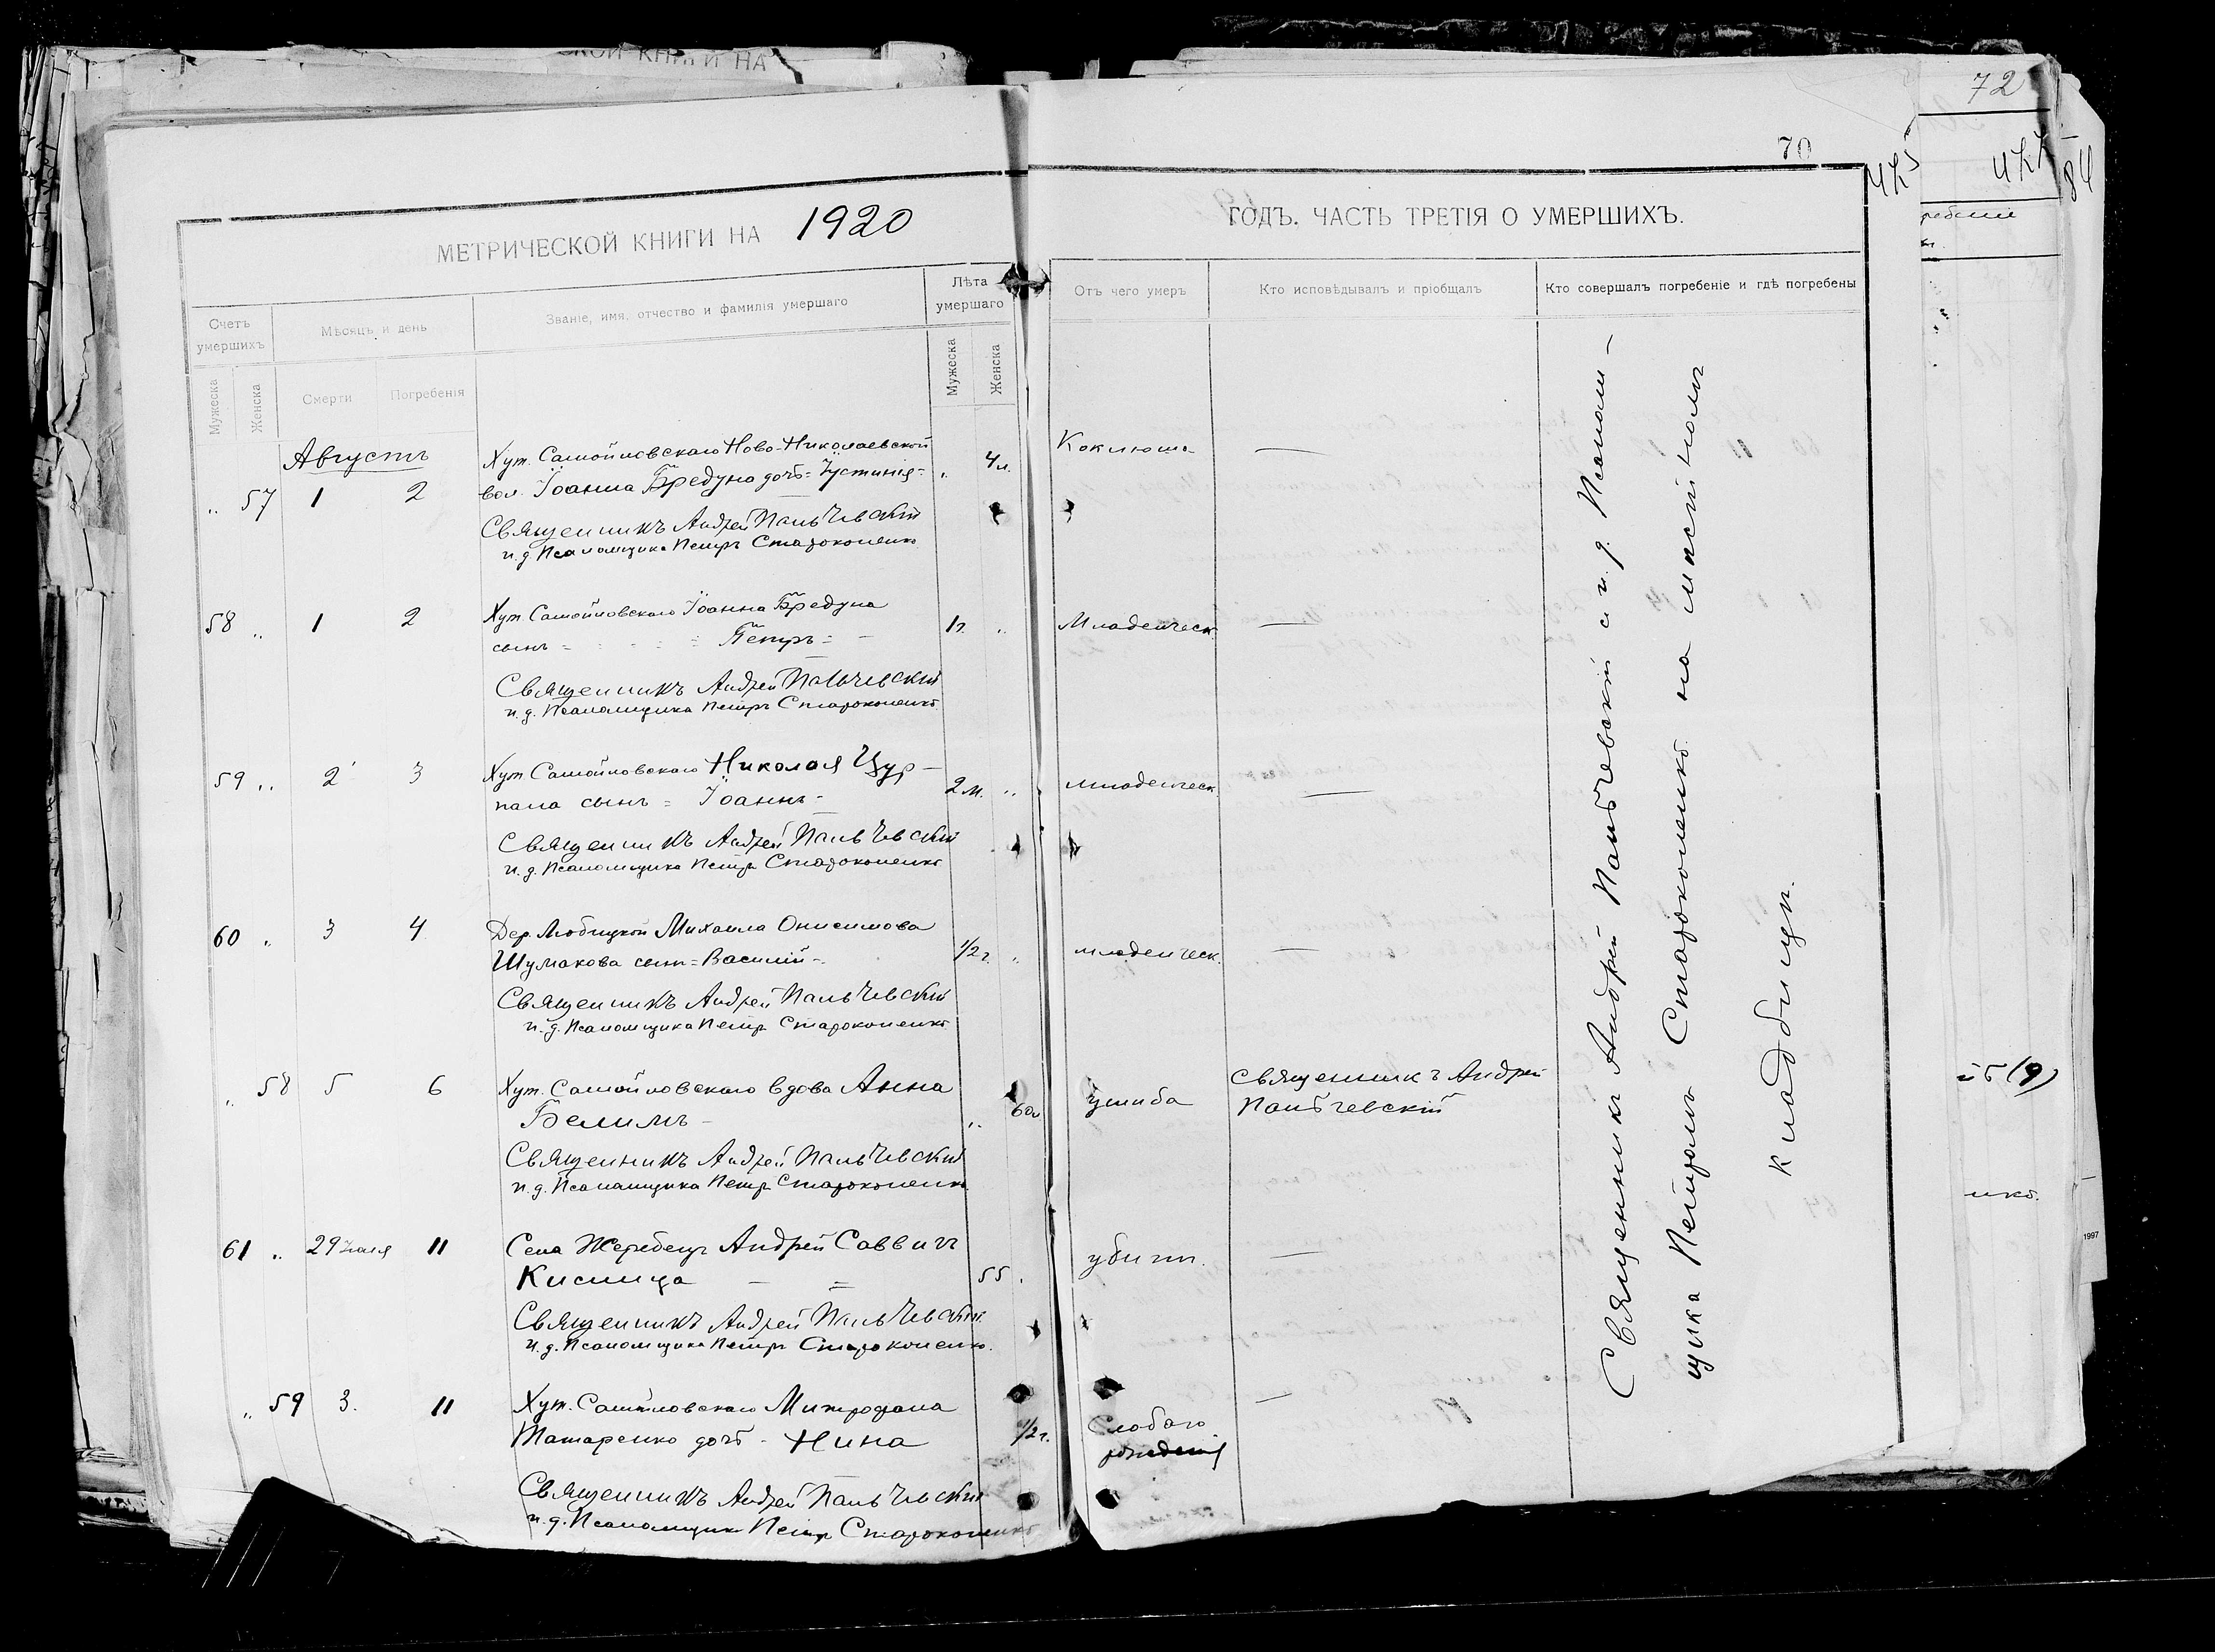 СКОЙ КНИГИ НА
72
70
МЕТРИЧЕСКОЙ КНИГИ НА 1920
ГОДЪ. ЧАСТЬ ТРЕТІЯ О УМЕРШИХЪ.
Счетъ умершихъ
Мѣсяцъ и день
Званіе, имя, отчество и фамилія умершаго
Лѣта умершаго
Отъ чего умеръ
Кто исповѣдывалъ и пріобщалъ
Кто совершалъ погребеніе и гдѣ погребены
Мужеска
Женска
Смерти
Погребенія
Мужеска
Женска
Августъ
Хут. Самойловскаго Ново-Николаевской
„ 57 1 2 вол. Іоанна Бредуна дочь = Іустинія = „ 4 л. Коклюша —
Священникъ Андрей Пальчевскій
и. д. Псаломщика Петръ Староконенко
58 „ 1 2 Хут. Самойловскаго Іоанна Бредуна
сынъ = Петръ = 1 г. „ Младенческ. —
Священникъ Андрей Пальчевскій
и. д. Псаломщика Петръ Староконенко
59 „ 2 3 Хут. Самойловскаго Николая Цур-
пала сынъ = Іоаннъ - 2 м. „ младенческ. —
Священникъ Андрей Пальчевскій
и. д. Псаломщика Петръ Староконенко
60 „ 3 4 Дер. Любицкой Михаила Онисимова
Шумакова сынъ = Василій - 1/2 г. „ младенческ. —
Священникъ Андрей Пальчевскій
и. д. Псаломщика Петръ Староконенко
„ 58 5 6 Хут. Самойловскаго вдова Анна
Белимъ - „ 60 л. ушиба Священникъ Андрей
Пальчевскій
Священникъ Андрей Пальчевскій
и. д. Псаломщика Петръ Староконенко
61 „ 29 Іюля 11 Села Жеребецъ Андрей Саввичъ
Кислица — = 55 „ убитъ. —
Священникъ Андрей Пальчевскій
и. д. Псаломщика Петръ Староконенко.
„ 59 3. 11 Хут. Самойловскаго Митрофана
Татаренко дочь - Нина 1/2 г. Слабаго —
рожденія
Священникъ Андрей Пальчевскій
и. д. Псаломщика Петръ Староконенко
Священникъ Андрей Пальчевскій с и. д. Псалом-
щика Петромъ Староконенко на мѣстномъ
кладбищѣ.
1997